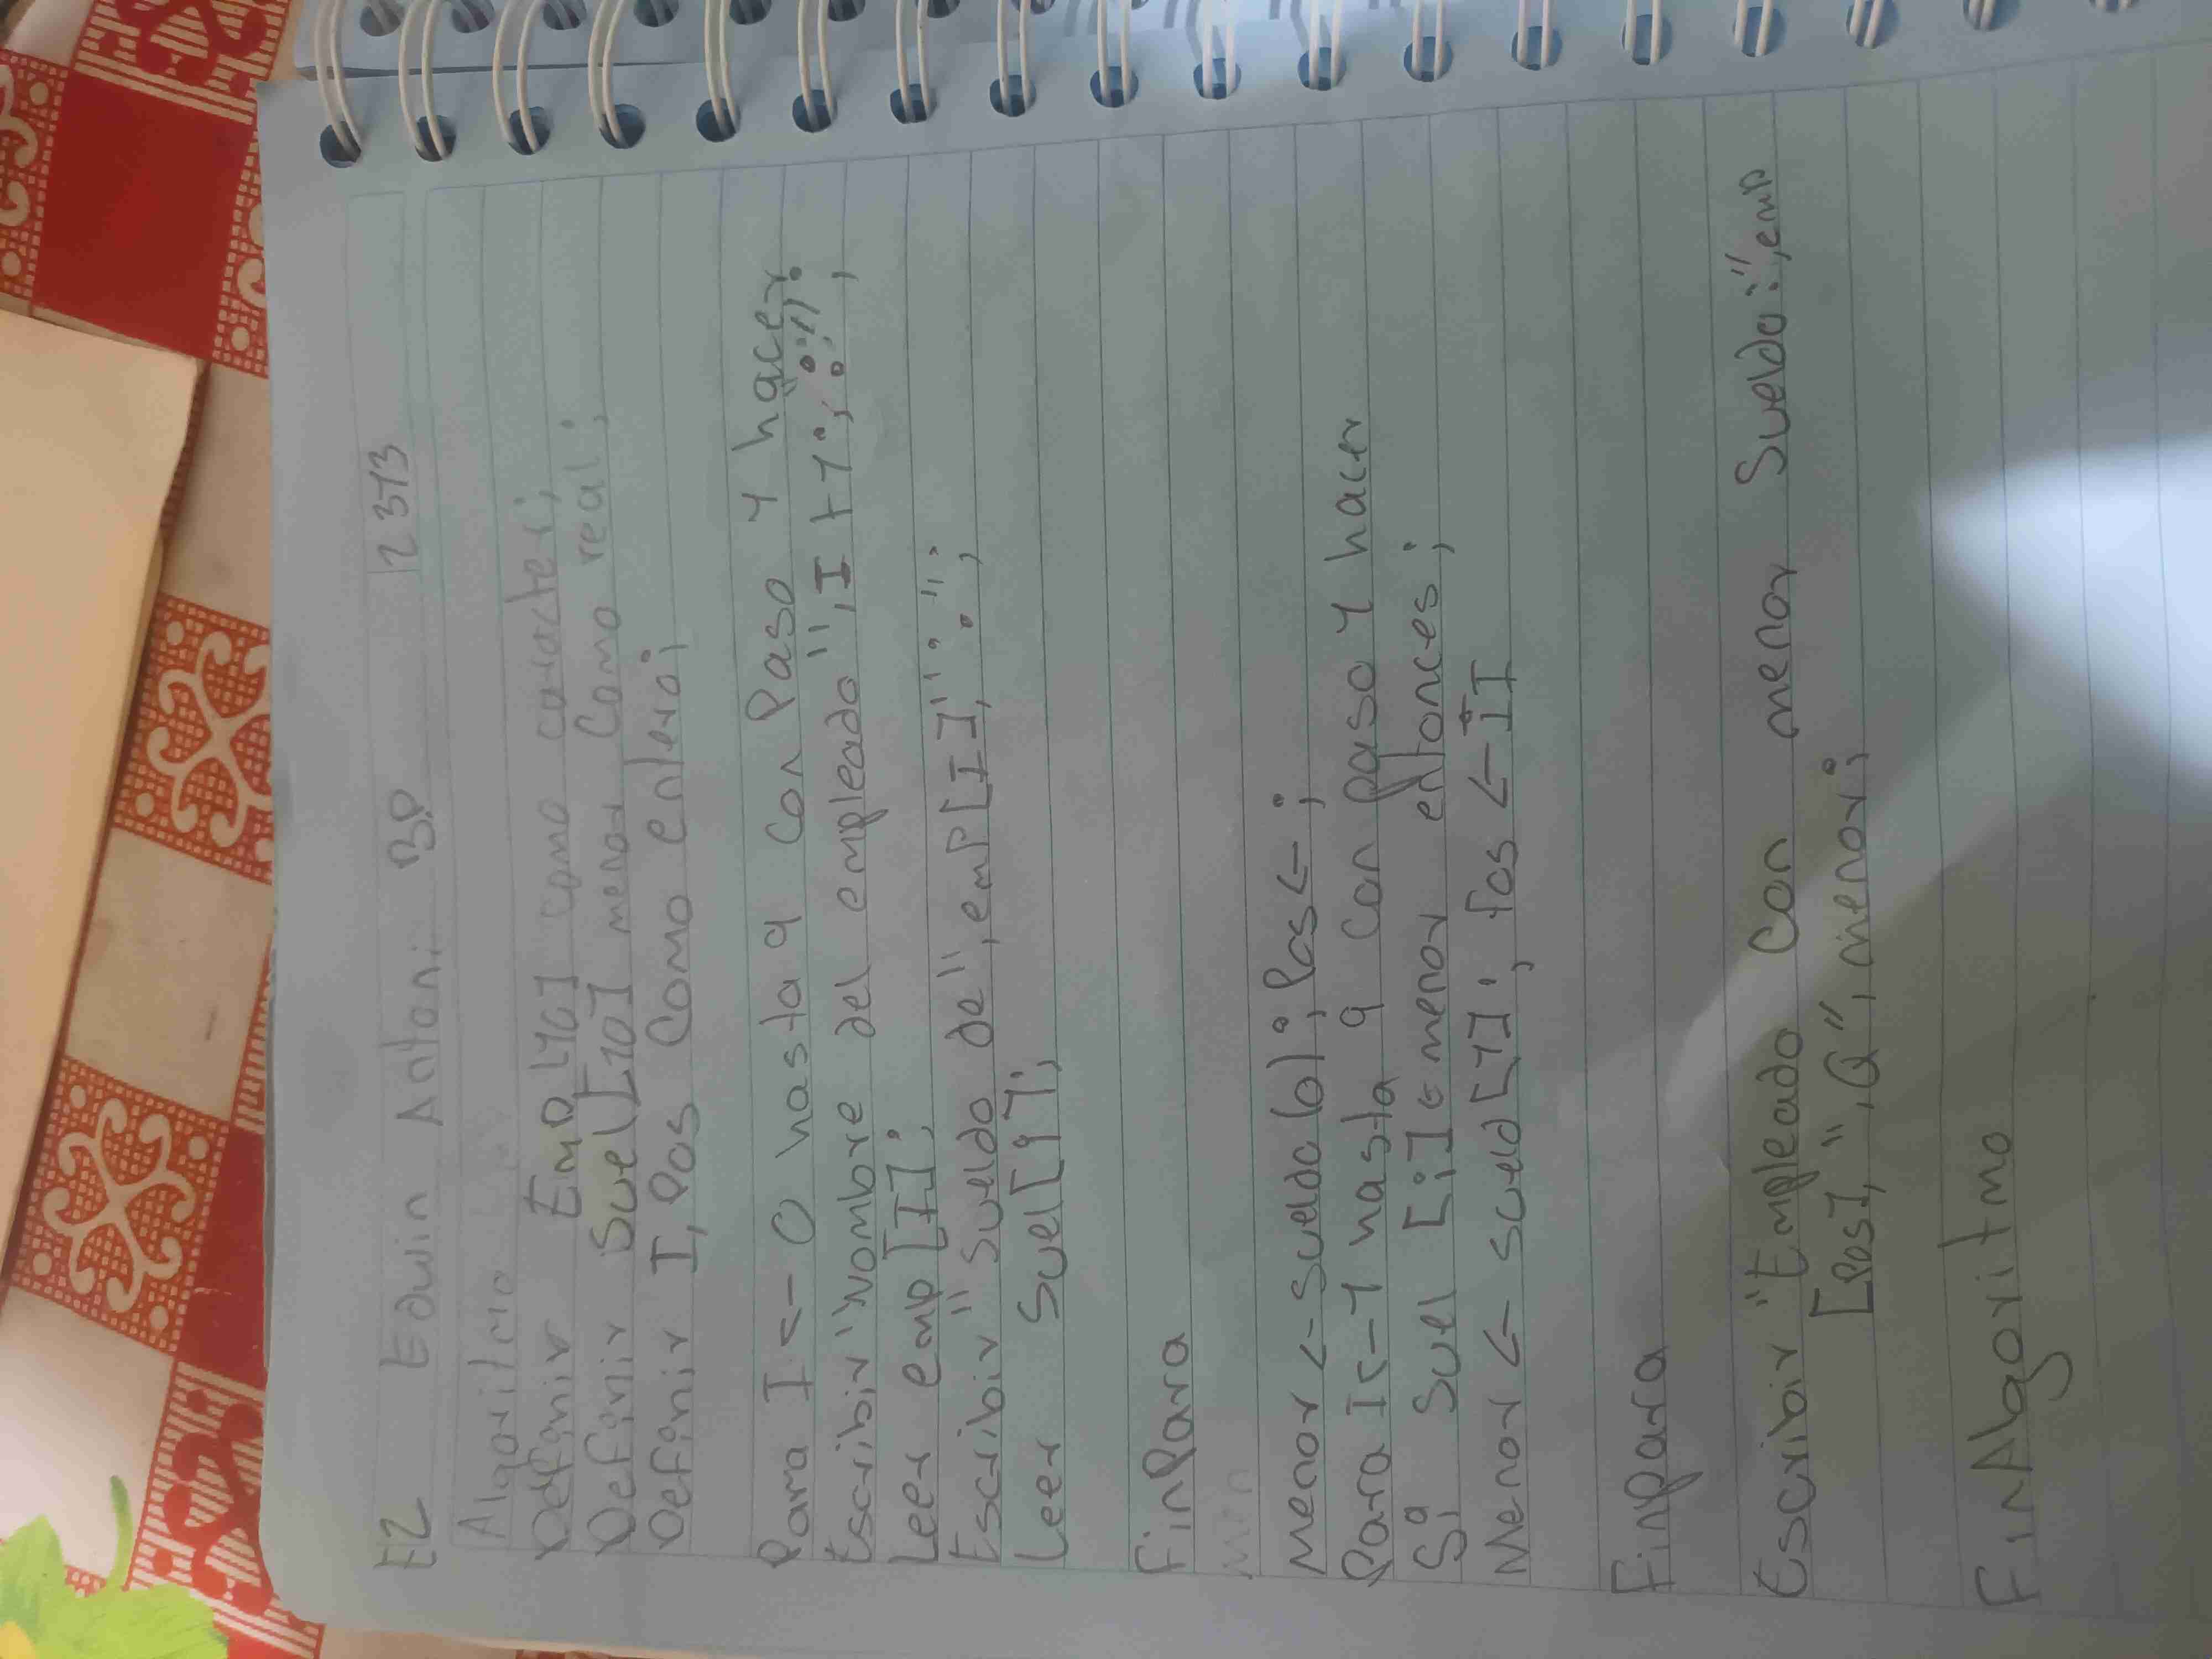 E2 Edwin Antoni BP 12313
Algoritmo
Definir Emp[10] como caracter;
Definir Suel[10] menor Como real;
Definir I, Pos Como entero;
Para I <- 0 hasta 9 Con Paso 1 hacer
Escribir "Nombre del empleado", I+1, ":";
Leer emp[I];
Escribir "Sueldo de", emp[I] ":";
Leer Suel[i];
FinPara
Menor <- sueldo(0); Pos <- ;
Para I <- 1 hasta 9 Con paso 1 hacer
Si Suel [i] < menor entonces;
Menor <- sueld[1]; Pos <- I
Finpara
Escribir "Empleado Con menor Sueldo:", emp
[Pos], "Q", menor;
FinAlgoritmo